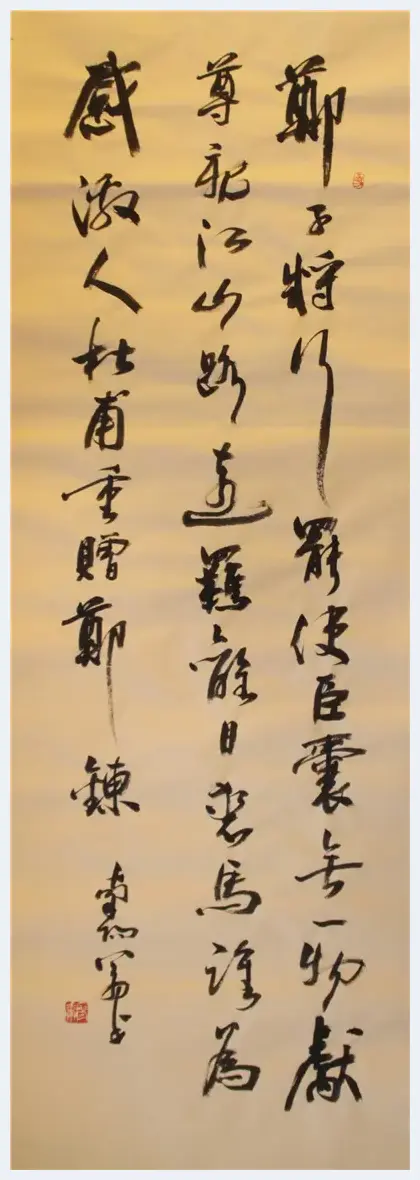 鄭子將行罷使臣囊無一物獻
尊親江山路遠羈離日裘馬誰為
感激人杜甫重贈鄭鍊